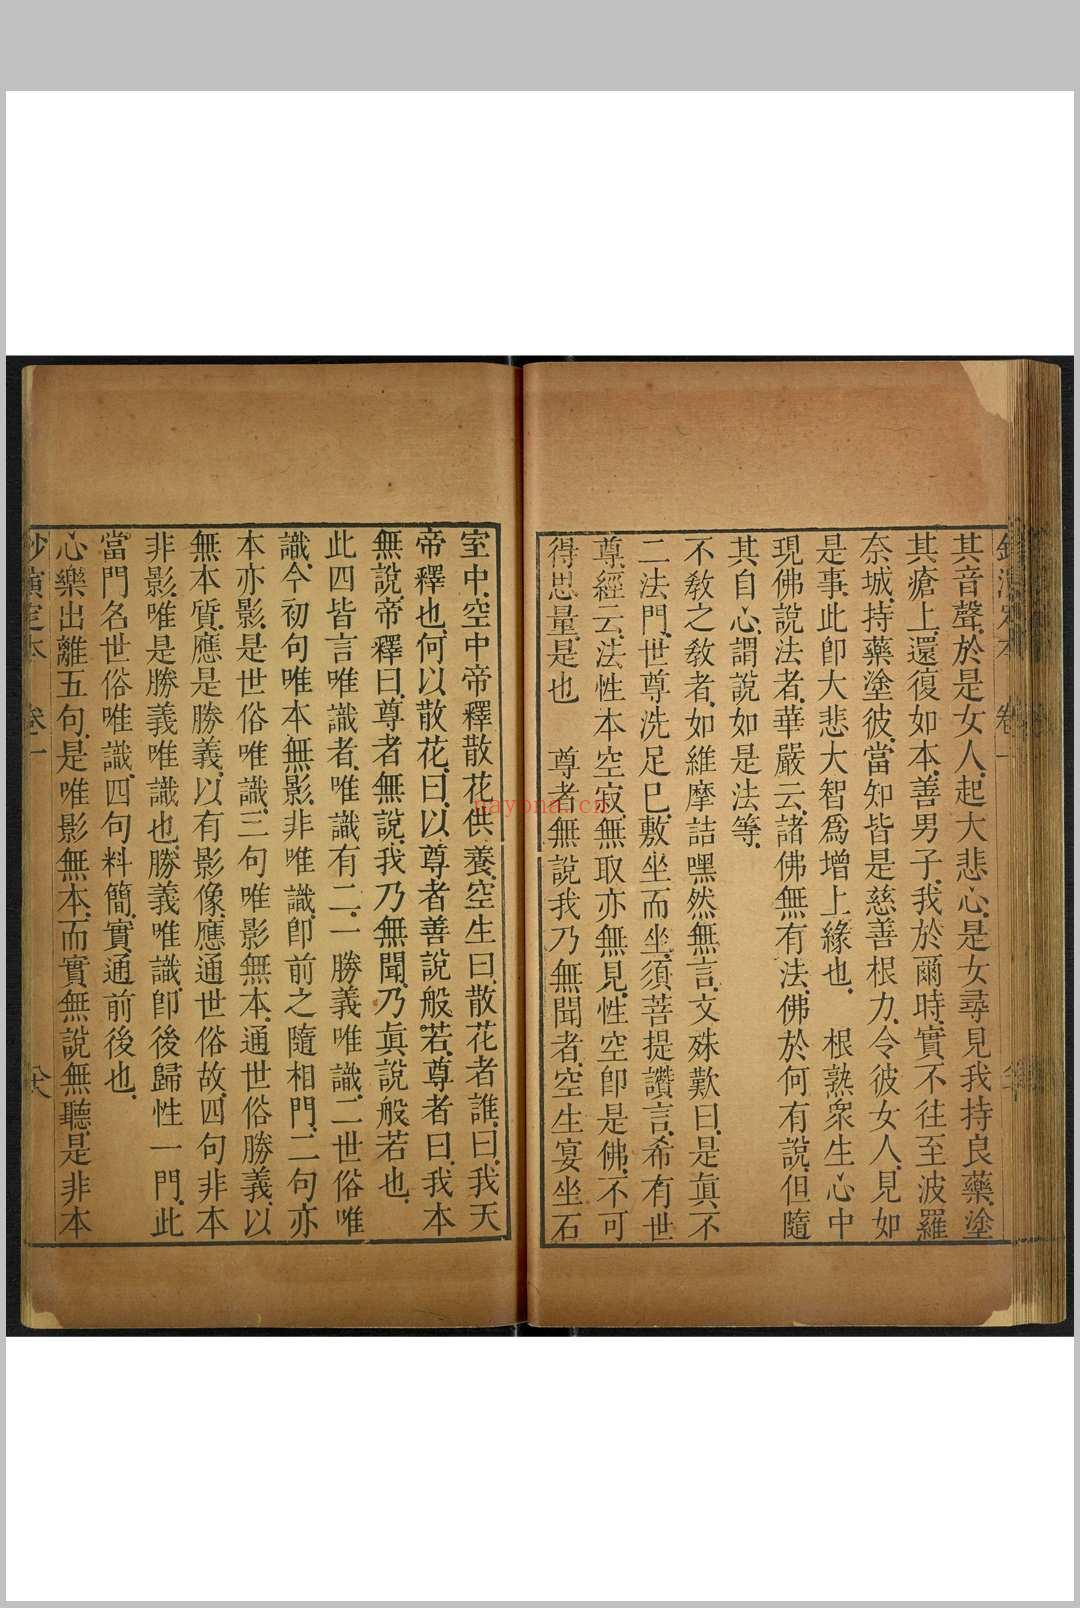 鈔演定本 卷一
其音聲於是女人起大悲心是女尋見我持良藥塗
其瘡上還復如本善男子我於爾時實不往至波羅
奈城持藥塗彼當知皆是慈善根力令彼女人見如
是事此卽大悲大智爲增上緣也 根熟衆生心中
現佛說法者華嚴云諸佛無有法佛於何有說但隨
其自心謂說如是法等
不敎之敎者如維摩詰嘿然無言文殊歎曰是眞不
二法門世尊洗足巳敷坐而坐須菩提讚言希有世
尊經云法性本空寂無取亦無見性空卽是佛不可
得思量是也 尊者無說我乃無聞者空生宴坐石
室中空中帝釋散花供養空生曰散花者誰曰我天
帝釋也何以散花曰以尊者善說般若尊者曰我本
無說帝釋曰尊者無說我乃無聞乃眞說般若也
此四皆言唯識者唯識有二一勝義唯識二世俗唯
識今初句唯本無影非唯識卽前之隨相門二句亦
本亦影是世俗唯識三句唯影無本通世俗勝義以
無本質應是勝義以有影像應通世俗故四句非本
非影唯是勝義唯識也勝義唯識卽後歸性一門此
當門名世俗唯識四句料簡實通前後也
心樂出離五句是唯影無本而實無說無聽是非本
鈔演定本 卷一
nayona.cn